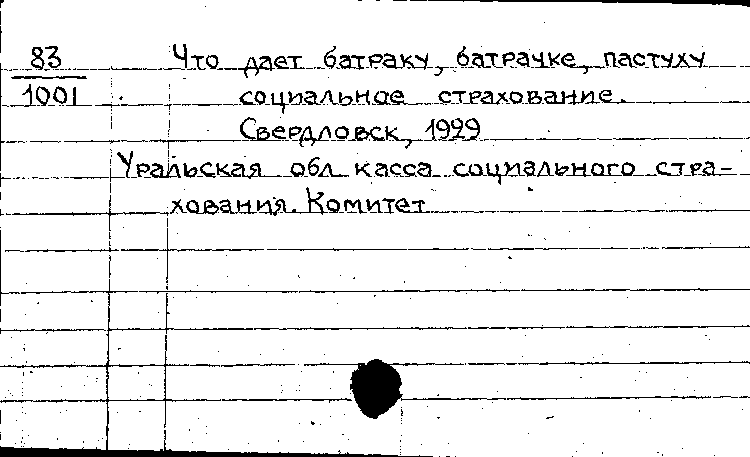 83
1001
Что дает батраку, батрачке, пастуху
социальное страхование.
Свердловск, 1929
Уральская обл касса социального стра-
хования. Комитет